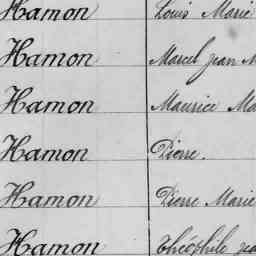 Hamon Louis Marie
Hamon Marcel Jean
Hamon Maurice
Hamon Pierre.
Hamon Pierre Marie
Hamon Théophile